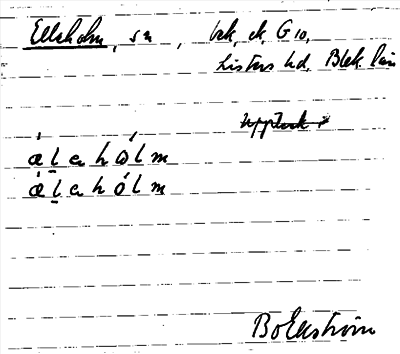 Elleholm, sn, bek, ek. G 10,
Listers hd. Blek. län
Uppteck
æ̣lahólm
æ̣lahólm
Bo Ekström